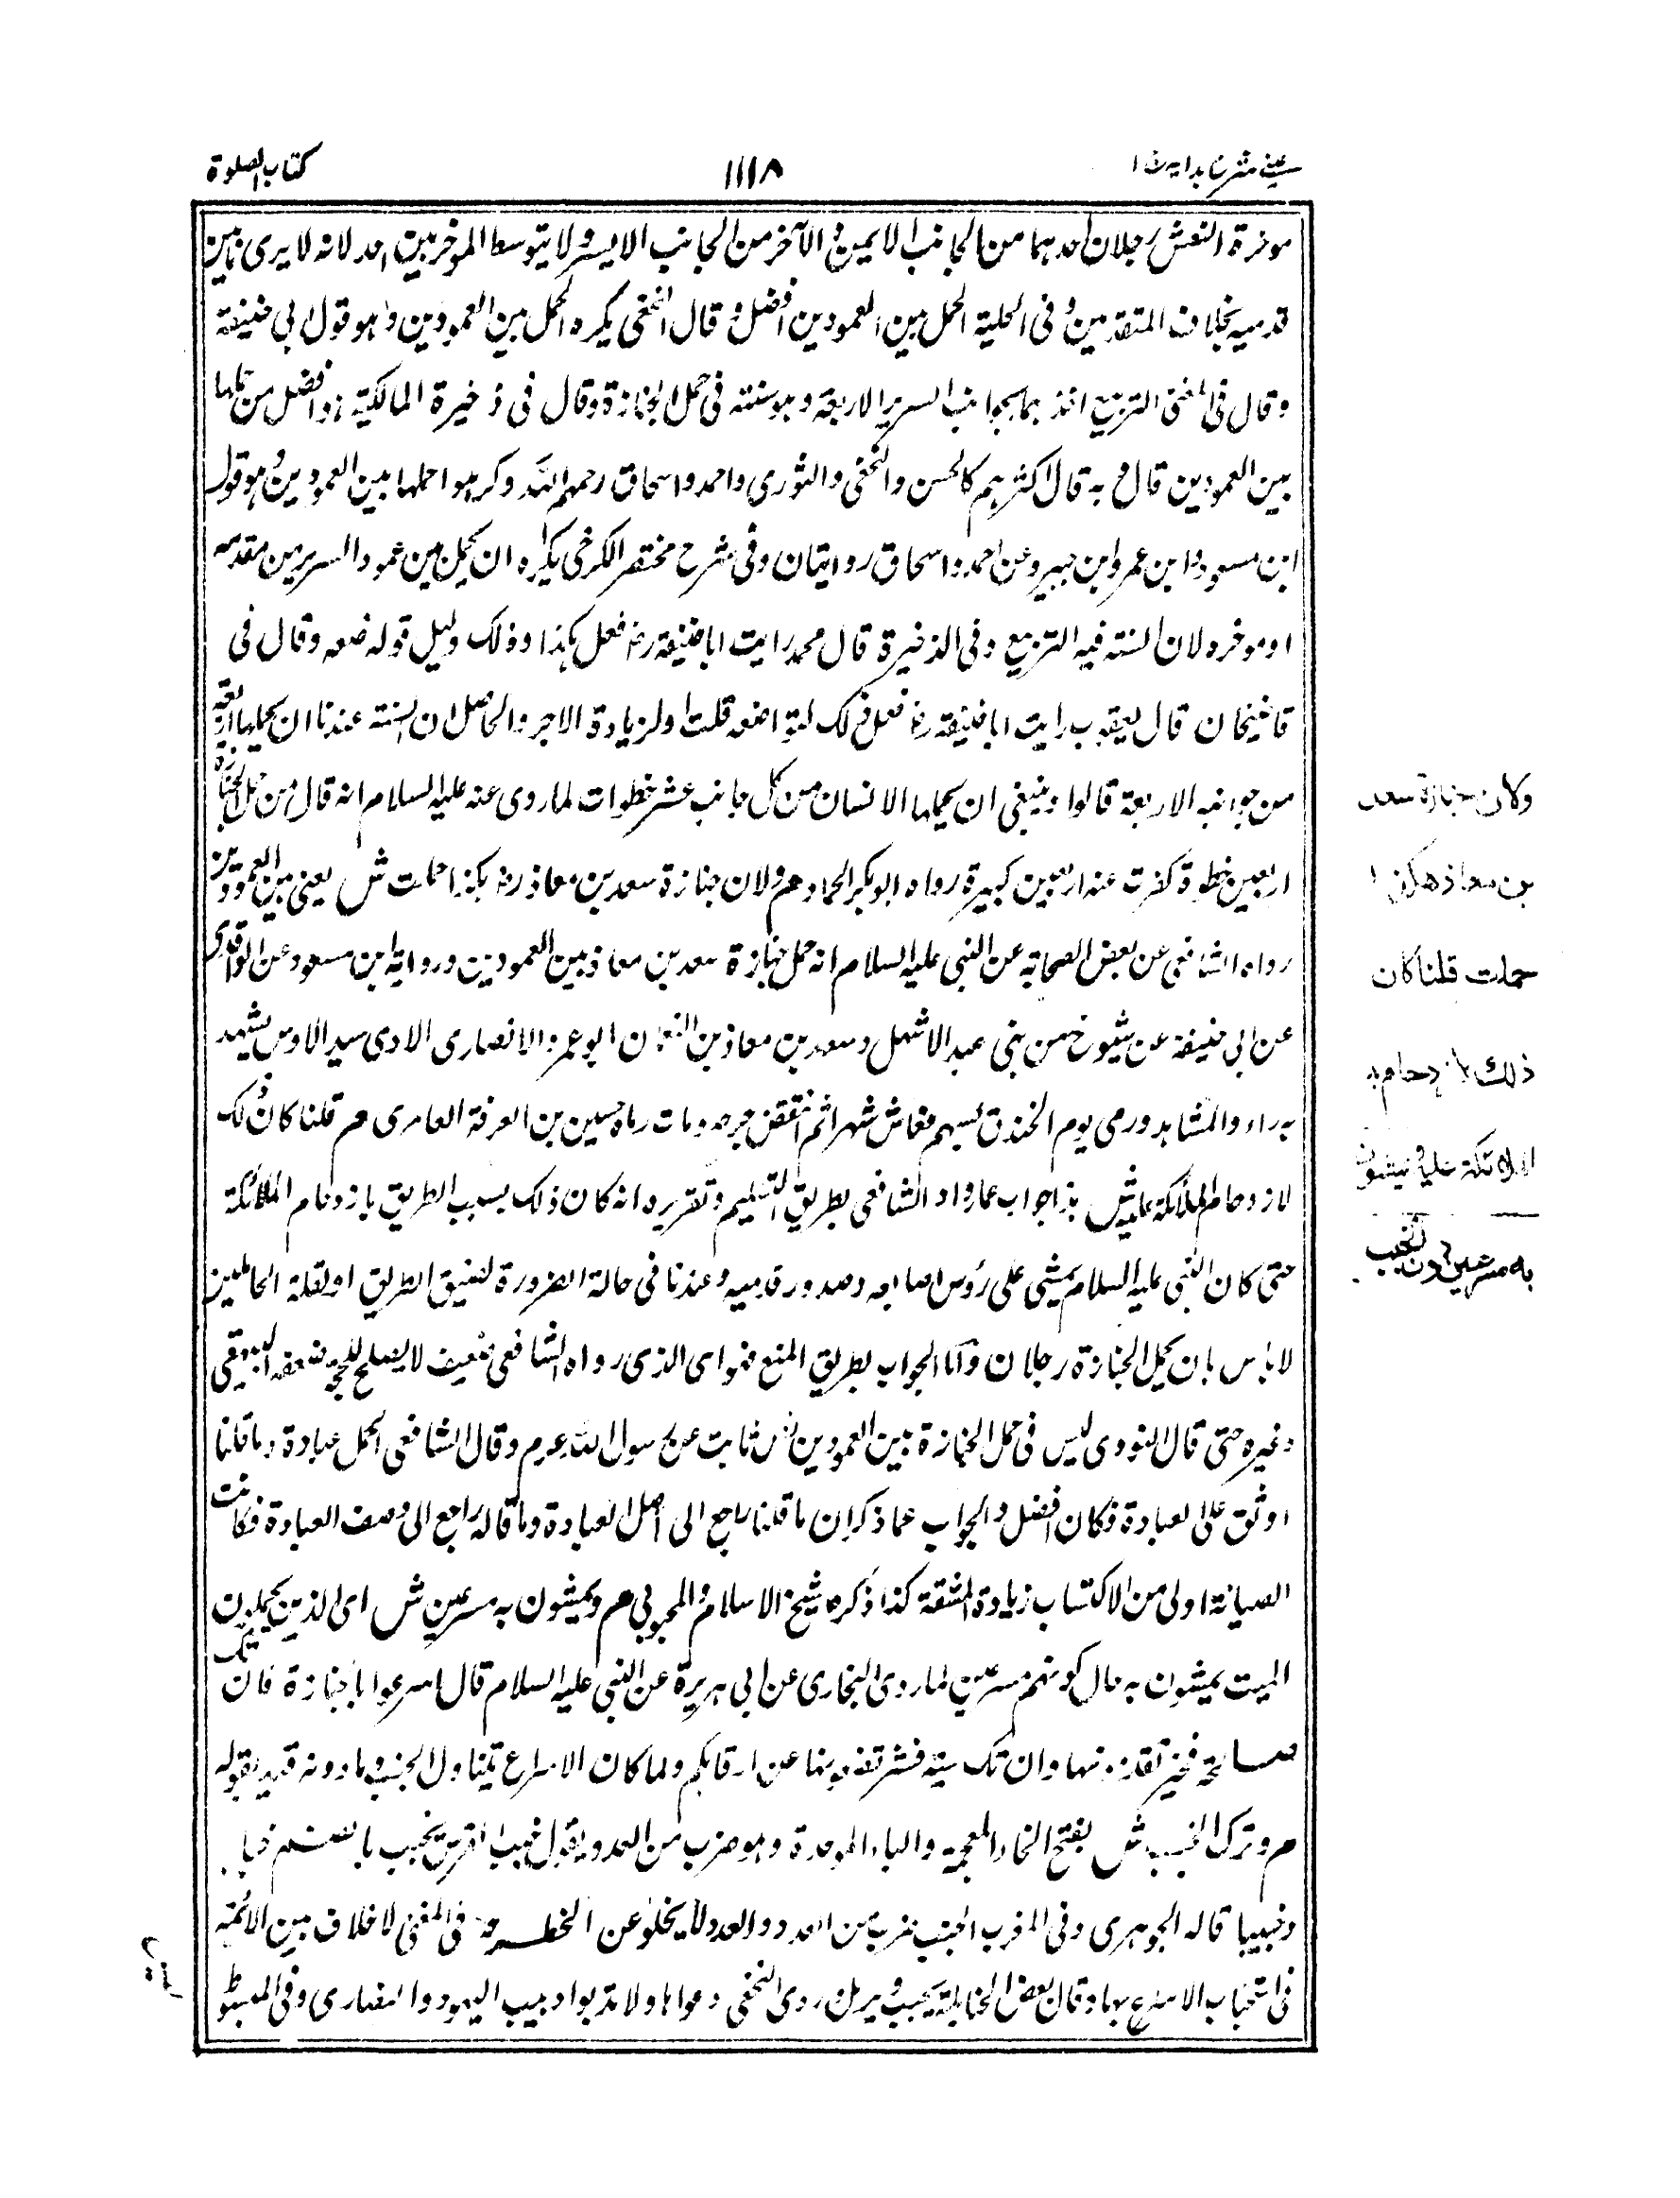 عيني شرح هداية ج ١
١١١٨
كتاب الصلوة
موخرة النعش رجلان احدهما من الجانب الايمن والآخر من الجانب الايسر ولا يتوسط الموخر بين احد لانه لا يرى ما بين
قدميه بخلاف المتقدمين وفى الحلية الحمل بين العمودين افضل وقال النخعى يكره الحمل بين العمودين وهو قول ابى حنيفة
وقال فى المغنى التربيع اخذ بها بجوانب السرير الاربعة وهو سنته فى حمل الجنازة وقال فى ذخيرة المالكية هو افضل من حملها
بين العمودين قال و به قال اكثرهم كالحسن والنخعى والثورى واحمد واسحاق رحمهم الله وكرهوا حملها بين العمودين وهو قول
ابن مسعود وابن عمر وابن جبير وعن احمد واسحاق روايتان وفى شرح مختصر الكرخى يكره ان يحمل بين عمود السرير من مقدمه
او موخره لان السنة فيه التربيع وفى الذخيرة قال محمد رايت ابا حنيفة رح فعل هكذا وذلك دليل تواضعه وقال فى
قاضيخان قال يعقوب رايت ابا حنيفة رح فعل ذلك لتواضعه قلت اولزيادة الاجر والحاصل ان السنة عندنا ان يحملها اربعة
من جوانبه الاربعة قالوا وينبغى ان يحملها الانسان من كل جانب عشر خطوات لما روى عنه عليه السلام انه قال من حمل الجنازة
اربعين خطوة كفرت عنه اربعين كبيرة رواه ابو بكر النجاد هم ولان جنازة سعد بن معاذ رض هكذا حملت ش يعنى بين العمودين
رواه الشافعى عن بعض الصحابة عن النبى عليه السلام انه حمل جنازة سعد بن معاذ بين العمودين ورواية ابن مسعود عن الواقدى
عن ابى حنيفة عن شيوخ من بنى عبد الاشهل وسعد بن معاذ بن النعمان ابو عمرو الانصارى الاوسى سيد الاوس شهد
بدرا والمشاهد ورمى يوم الخندق بسهم فعاش شهرا ثم انتقض جرحه ومات رماه حسين بن العرفة العامرى هم قلنا كان ذلك
لازدحام الملائكة عليه ش هذا جواب عما رواه الشافعى بطريق التسليم وتقريره انه كان ذلك بسبب الطريق بازدحام الملائكة
حتى كان النبى عليه السلام يمشى على رؤس اصابعه وصدور قدميه وعندنا فى حالة الضرورة لضيق الطريق او لقلة الحاملين
لا باس بان يحمل الجنازة رجلان واما الجواب بطريق المنع فهو اى الذى رواه الشافعى ضعيف لا يصلح للحجة ضعفه البيهقى
وغيره حتى قال النووى ليس فى حمل الجنازة بين العمودين نص ثابت عن رسول الله عم وقال الشافعى الحمل عبادة وما قلنا
اوثق على العبادة فكان افضل والجواب عما ذكر ان ما قلنا راجع الى اصل العبادة وما قاله راجع الى وصف العبادة فكانت
الصيانة اولى من الاكتساب زيادة المشقة كذا ذكره شيخ الاسلام والمحبوبى هم ويمشون به مسرعين ش اى الذين يحملون
الميت يمشون به حال كونهم مسرعين لما روى البخارى عن ابى هريرة عن النبى عليه السلام قال اسرعوا بالجنازة فان تك
صالحة فخير تقدمونها وان تك سيئة فشر تضعونها عن ارقابكم ولما كان الاسراع يتناول الخبب وما دونه قيد بقوله
هم وترك الخبب ش بفتح الخاء المعجمة والباء الموحدة وهو ضرب من العدو يقول خب الفرس يخب بالضم خبا
وخبيبا قاله الجوهرى وفى المغرب الخبب ضرب من العدو والعدو لا يخلو عن الخطر وفى المغنى لا خلاف بين الائمة
فى استحباب الاسراع بها وقال بعض الحنابلة يخبب ويرمل روى النخعى دعواها ولا تدبوا دبيب اليهود والنصارى وفى المبسوط
ولان جنازة سعد
بن معاذ هكذا
حملت قلنا كان
ذلك لازدحام
الملائكة عليه ويمشون
به مسرعين دون الخبب